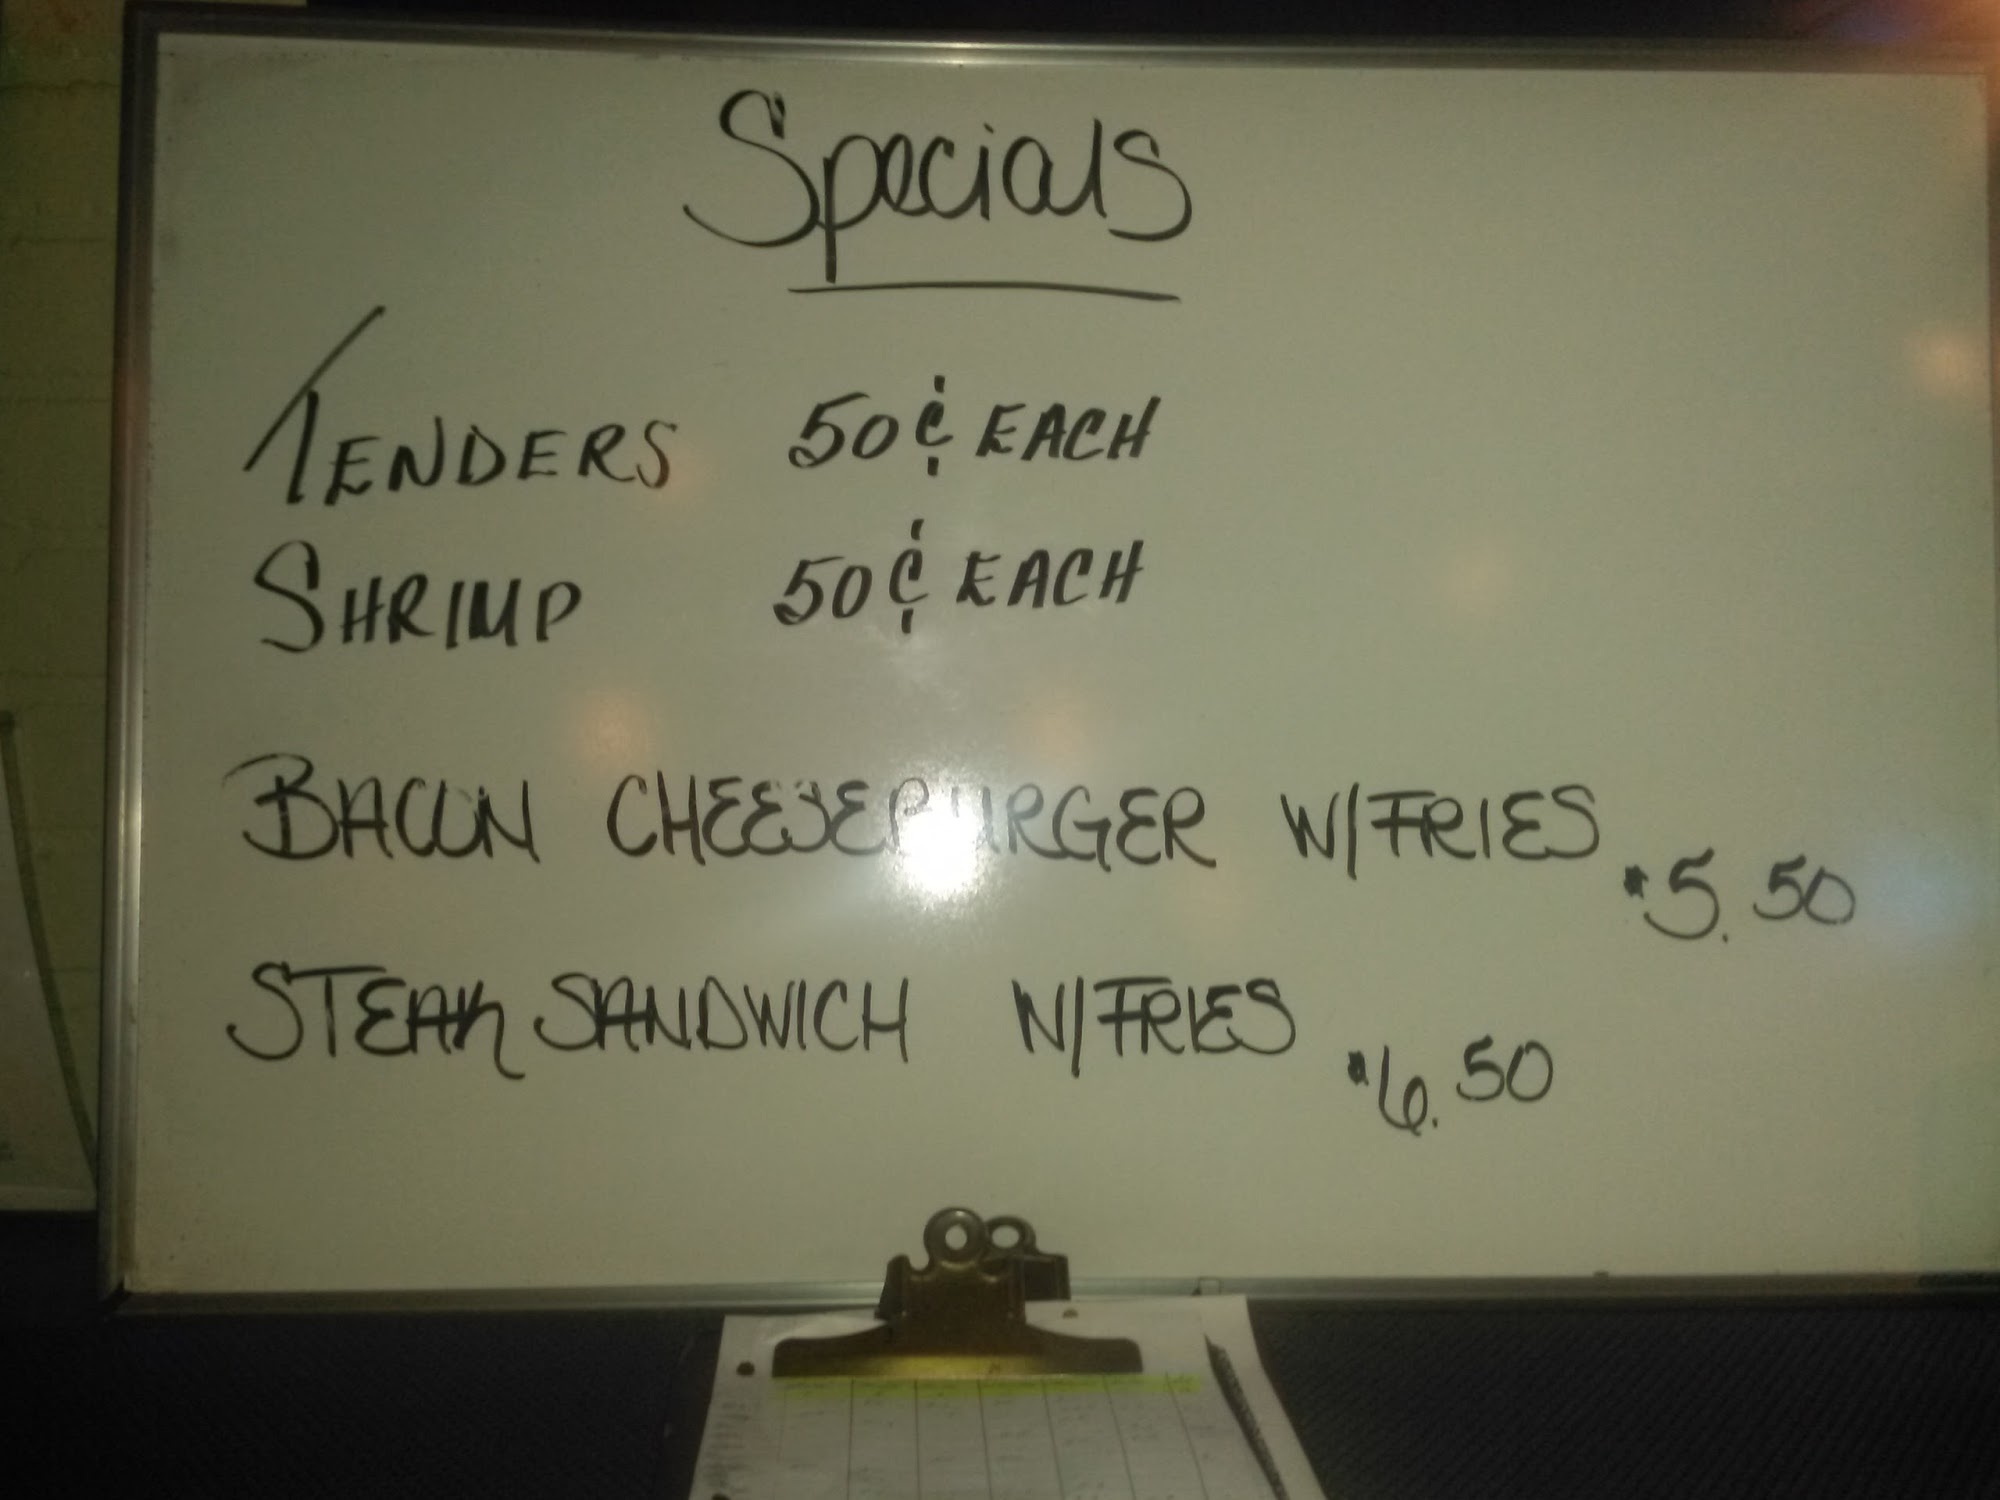 Specials
TENDERS 50¢ EACH
SHRIMP 50¢ EACH
BACON CHEESEBURGER W/FRIES
$5.50
STEAK SANDWICH W/FRIES
$6.50